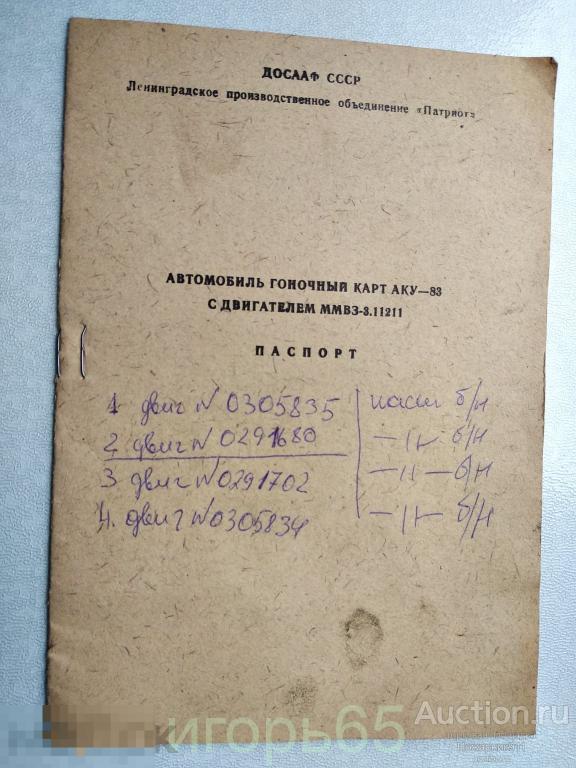 ДОСААФ СССР
Ленинградское производственное объединение «Патриот»
АВТОМОБИЛЬ ГОНОЧНЫЙ КАРТ АКУ—83
С ДВИГАТЕЛЕМ ММВЗ-3.11211
ПАСПОРТ
1 двиг № 0305835 | шасси б/н
2. двиг № 0291680 —11— б/н
3 двиг № 0291702 —11— б/н
4. двиг № 0305834 —11— б/н
игорь65
Auction.ru